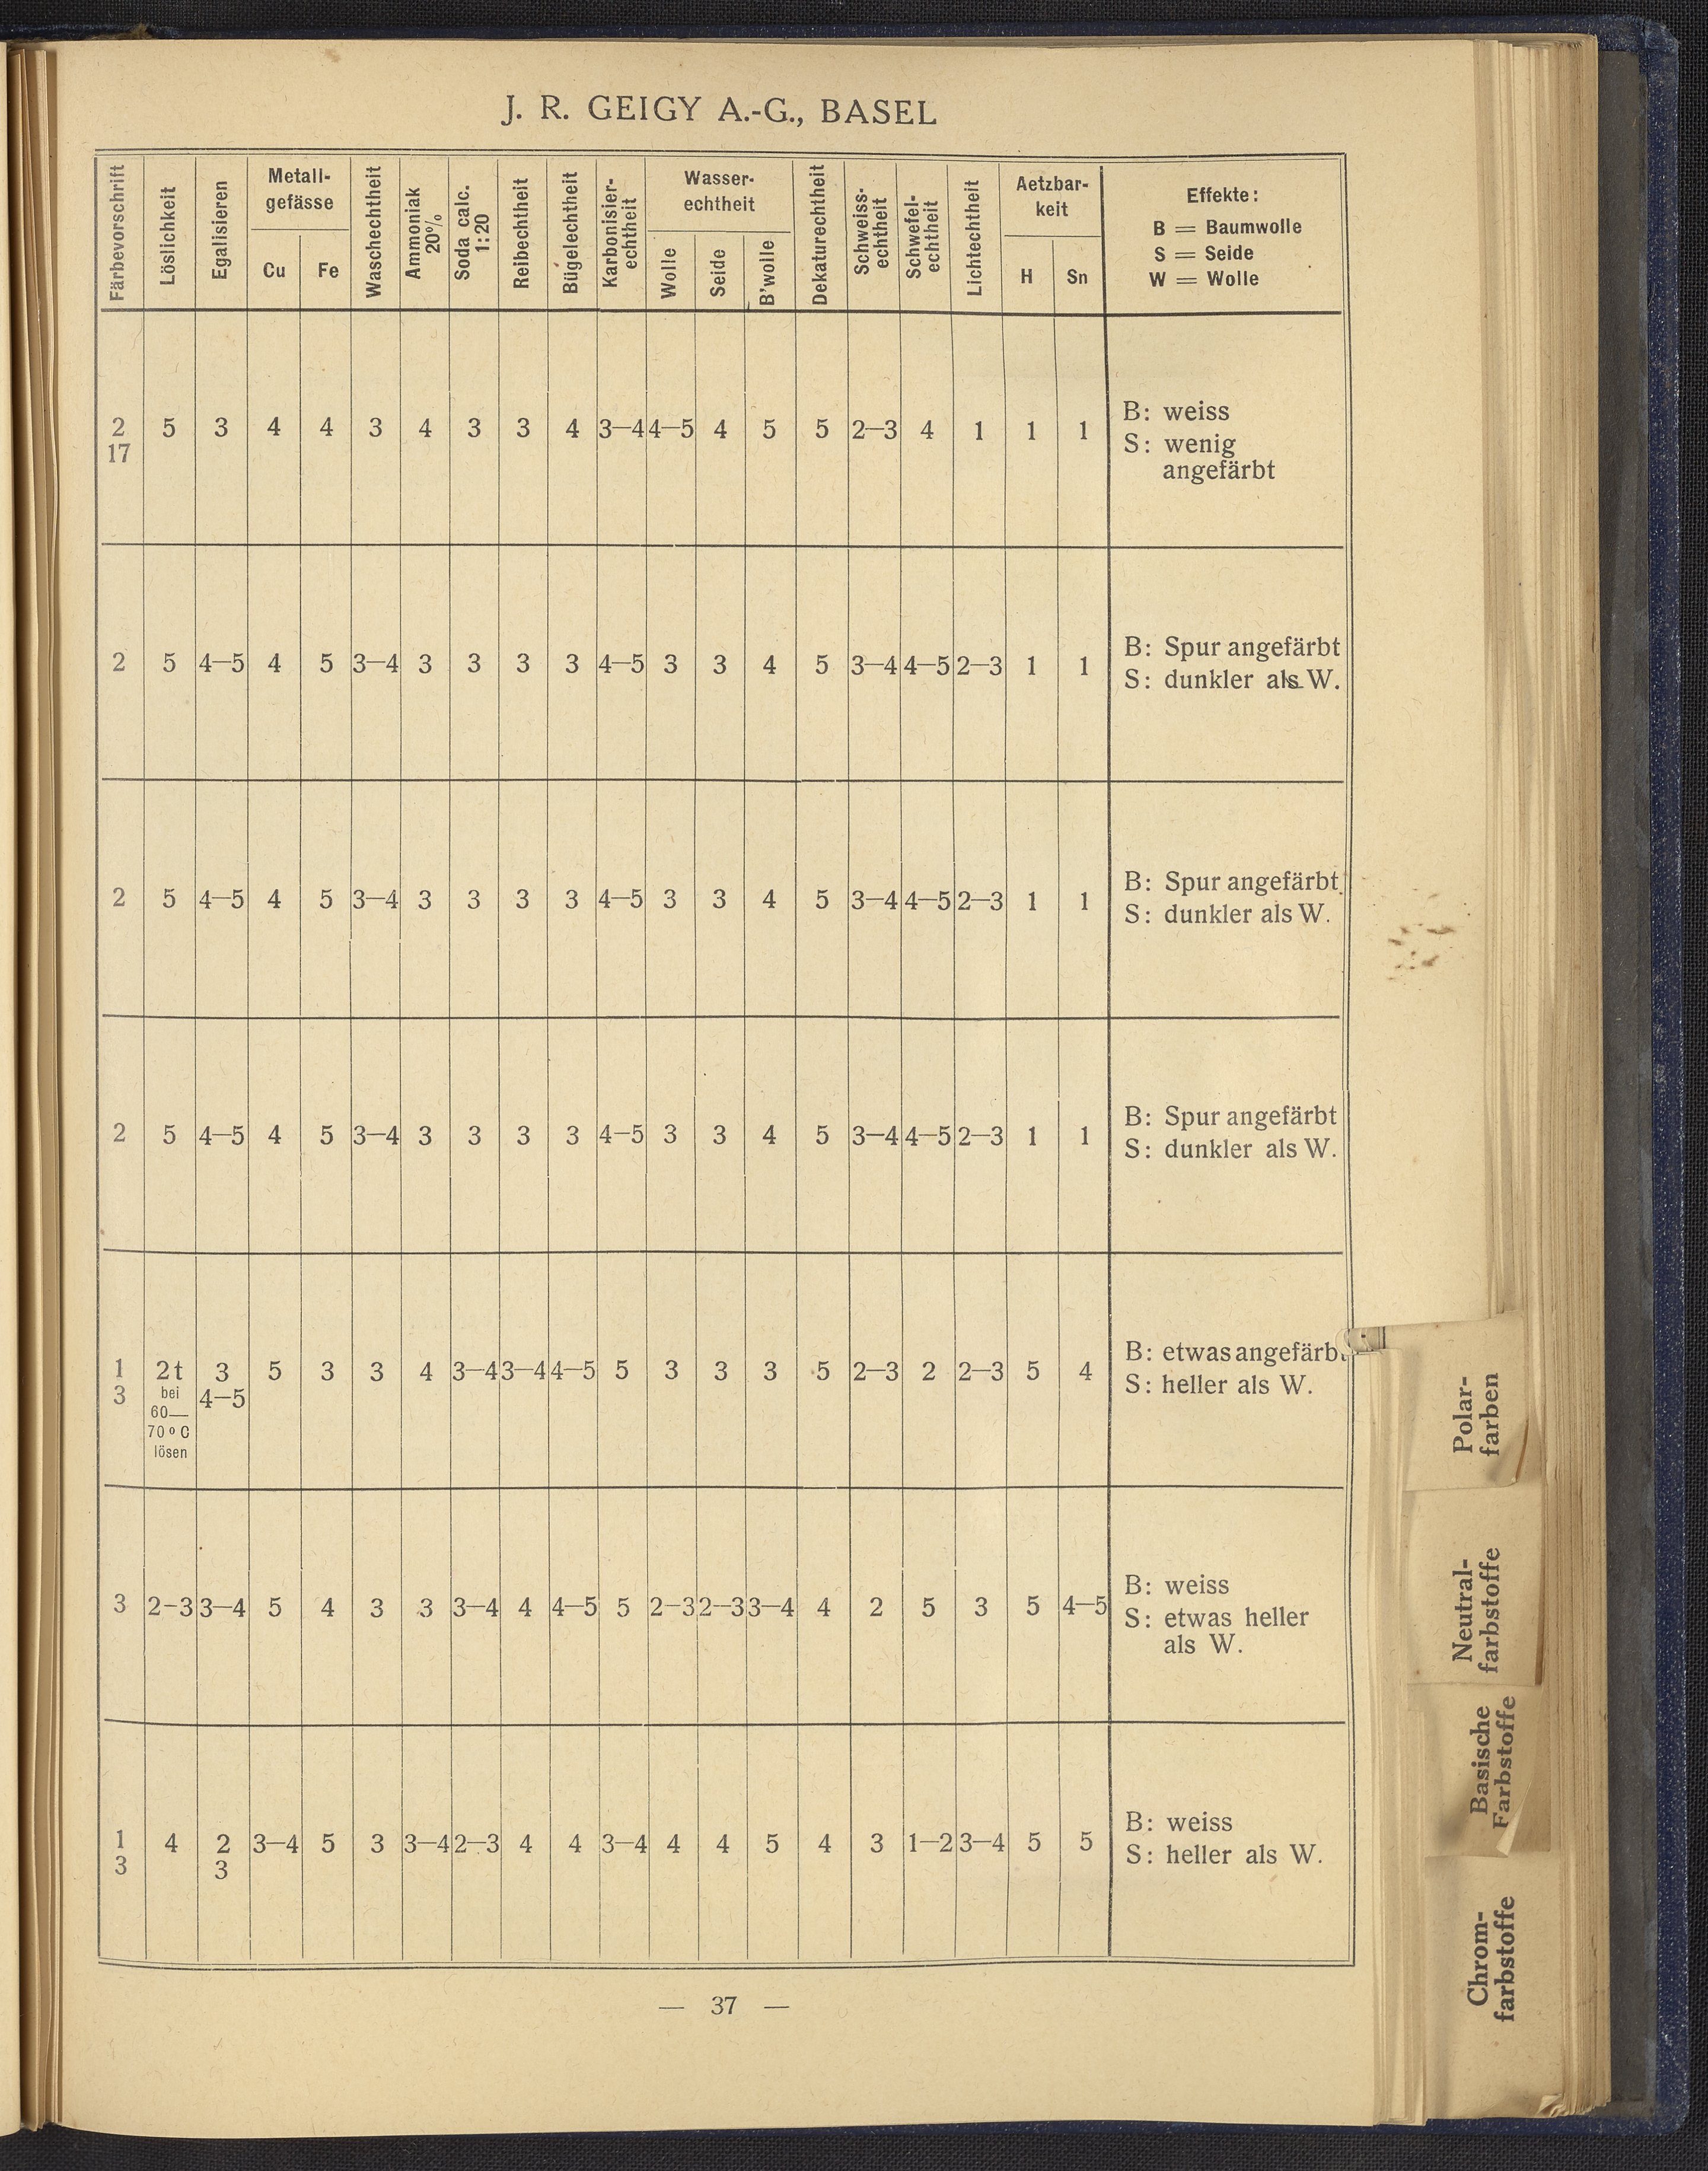 J. R. GEIGY A.-G., BASEL
Färbevorschrift
Löslichkeit
Egalisieren
Metall-
gefässe
Cu Fe
Waschechtheit
Ammoniak
20%
Soda calc.
1:20
Reibechtheit
Bügelechtheit
Karbonisier-
echtheit
Wasser-
echtheit
Wolle
Seide
B'wolle
Dekaturechtheit
Schweiss-
echtheit
Schwefel-
echtheit
Lichtechtheit
Aetzbar-
keit
H Sn
Effekte:
B = Baumwolle
S = Seide
W = Wolle
2 5 3 4 4 3 4 3 3 4 3—4 4—5 4 5 5 2—3 4 1 1 1
17
B: weiss
S: wenig
angefärbt
2 5 4—5 4 5 3—4 3 3 3 3 4—5 3 3 4 5 3—4 4—5 2—3 1 1
B: Spur angefärbt
S: dunkler als W.
2 5 4—5 4 5 3—4 3 3 3 3 4—5 3 3 4 5 3—4 4—5 2—3 1 1
B: Spur angefärbt
S: dunkler als W.
2 5 4—5 4 5 3—4 3 3 3 3 4—5 3 3 4 5 3—4 4—5 2—3 1 1
B: Spur angefärbt
S: dunkler als W.
1 2t 3 5 3 3 4 3—4 3—4 4—5 5 3 3 3 5 2—3 2 2—3 5 4
3 bei 4—5
60—
70° C
lösen
B: etwas angefärbt
S: heller als W.
3 2—3 3—4 5 4 3 3 3—4 4 4—5 5 2—3 2—3 3—4 4 2 5 3 5 4—5
B: weiss
S: etwas heller
als W.
1 4 2 3—4 5 3 3—4 2—3 4 4 3—4 4 4 5 4 3 1—2 3—4 5 5
3 3
B: weiss
S: heller als W.
— 37 —
Polar-
farben
Neutral-
farbstoffe
Basische
Farbstoffe
Chrom-
farbstoffe